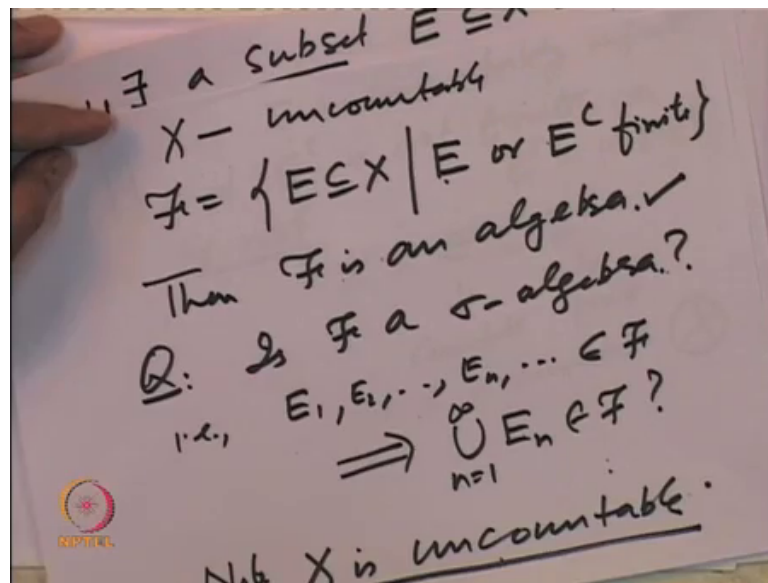 ∃ a subset E ⊆ X
X — uncountable
ℱ = { E ⊆ X | E or E^c finite }
Then ℱ is an algebra. ✓
Q: Is ℱ a σ-algebra?
i.e., E₁, E₂, ..., Eₙ, ... ∈ ℱ
⟹ ⋃_{n=1}^{∞} Eₙ ∈ ℱ ?
Note X is uncountable.
NPTEL